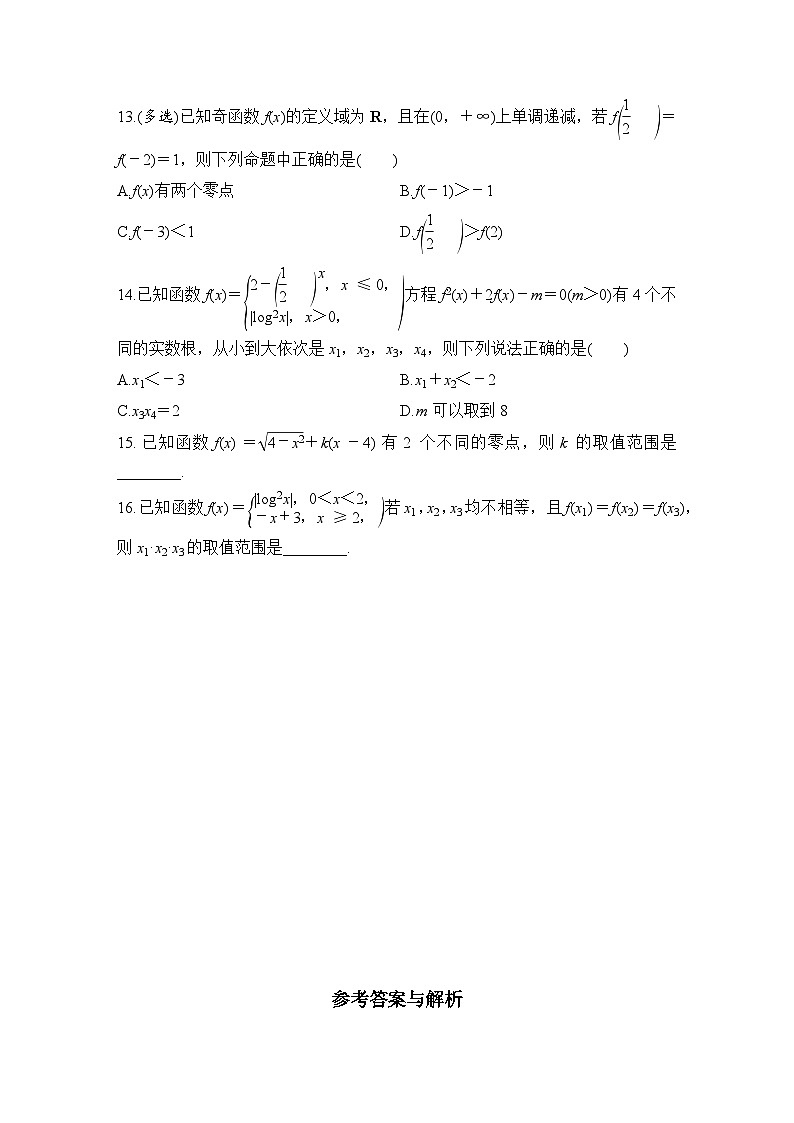 13.(多选)已知奇函数 f(x)的定义域为 R，且在(0，＋∞)上单调递减，若 f(1/2)＝
f(－2)＝1，则下列命题中正确的是(　　)
A.f(x)有两个零点　　B.f(－1)＞－1
C.f(－3)＜1　　D.f(1/2)＞f(2)
14.已知函数 f(x)＝{2－(1/2)^x，x ≤ 0，|log2x|，x＞0，)方程 f²(x)＋2f(x)－m＝0(m＞0)有 4 个不
同的实数根，从小到大依次是 x₁，x₂，x₃，x₄，则下列说法正确的是(　　)
A.x₁＜－3　　B.x₁＋x₂＜－2
C.x₃x₄＝2　　D.m 可以取到 8
15. 已知函数 f(x) ＝√(4－x²)＋k(x －4) 有 2 个不同的零点，则 k 的取值范围是
________.
16.已知函数 f(x)＝{|log2x|，0＜x＜2，－x＋3，x ≥ 2，)若 x₁,x₂,x₃均不相等，且 f(x₁)＝f(x₂)＝f(x₃)，
则 x₁·x₂·x₃的取值范围是________.
参考答案与解析